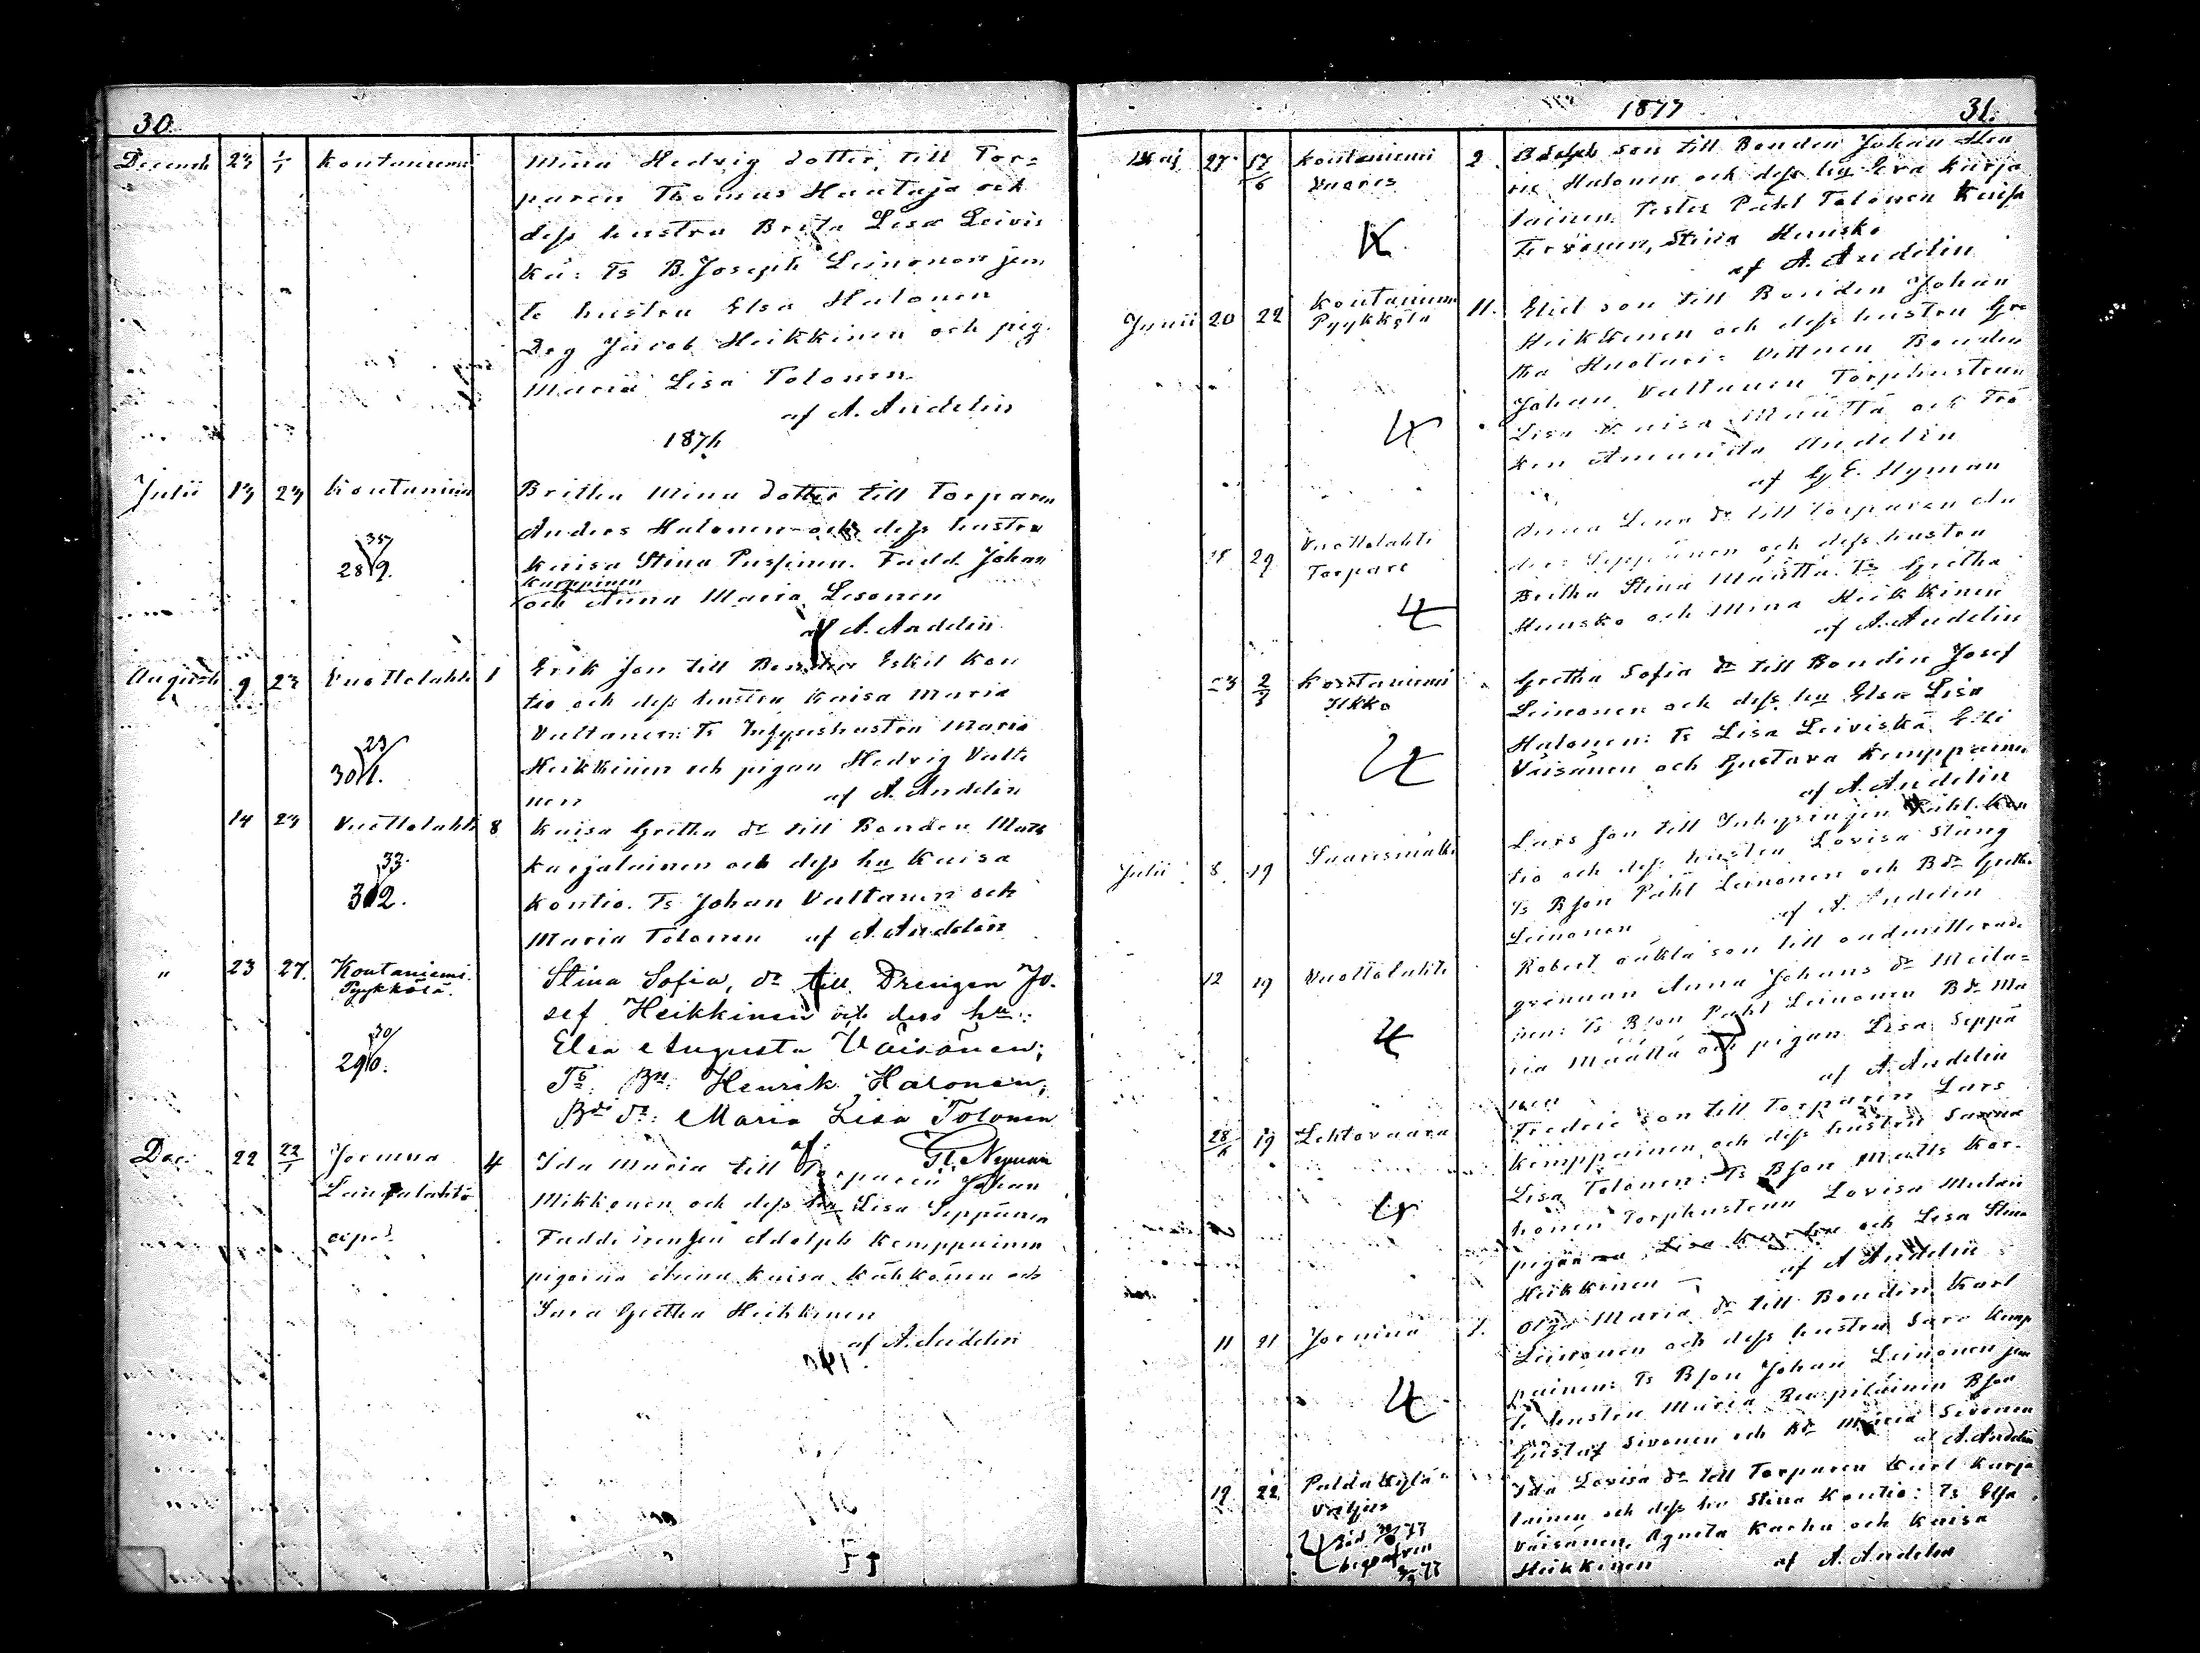 30.
Decemb 23 1/1 Koutaniemi Mina Hedvig dotter till Tor=
paren Thomas Hautaja och
dess hustru Brita Lisa Leivis
kä: Ts B. Joseph Leinonen jem
te hustru Elsa Halonen
Drg Jacob Heikkinen och pig.
Maria Lisa Tolonen
af A. Andelin
1876
Julii 13 23 Koutaniemi Britha Mina dotter till Torparen
Anders Halonen och dess hustru
357 Kaisa Stina Pussinen. Fadd. Johan
289. Karppinen
och Anna Maria Lesonen
af A. Andelin
Augusti 9 23 Vuottolahti 1 Erik son till Bonden Eskil Kon
tio och dess hustru Kaisa Maria
Vultanen: Ts Inhyseshustru Maria
29 Heikkinen och pigan Hedvig Vulta
301. nen af A. Andelin
14 23 Vuottolahti 8 Kaisa Gretha dr till Bonden Mats
Karjalainen och dess hu Kaisa
33 Kontio. Ts Johan Vultanen och
302. Maria Tolonen af A. Andelin
" 23 27. Koutaniemi Stina Sofia, dr till Drengen Jo-
Pyykkölä. sef Heikkinen och dess hu:
30 Elsa Augusta Väisänen;
290. Ts: Bn: Henrik Halonen,
Bde dr: Maria Lisa Tolonen
af: G. E. Nyman
Dec: 22 22/1 Jormua 4 Ida Maria till Torparen Johan
Mikkonen och dess hu Lisa Seppänen
Fadd: Adolph Kemppainen
pigorna Anna Kaisa Kähkönen och
Sara Gretha Heikkinen
af A. Andelin
1877 31.
Maj 27 17/6 Koutaniemi 2. Adolph son till Bonden Johan Hen
Vaaris ric Halonen och dess hu Eva Karja
lainen. Testes Påhl Tolonen Kaisa
Tervonen, Stina Hunsko
af A. Andelin
Junii 20 22 Koutaniemi 11. Elid son till Bonden Johan
Pyykkölä Heikkinen och dess hustru Gre
tha Huotari: Vittnen Bonden
Johan Vultanen Torphustrun
Lisa Kaisa Määttä och Frö
ken Amanda Andelin
af G. E. Nyman
29 Vuottolahti Anna Lena dr till Torparen An
Torpare ders Seppänen och dess hustru
Britha Stina Määttä. Ts Gretha
Hunsko och Mina Heikkinen
af A. Andelin
23 2/3 Koutaniemi Gretha Sofia dr till Bonden Josef
Ilkko Leinonen och dess hu Elsa Lisa
Halonen: Ts Lisa Leiviskä
Väisänen och Gustava Kemppainen
af A. Andelin
Julii 8 19 Saaresmäki Lars son till Inhysingen Påhl Kon
tio och dess hustru Lovisa Stång
Ts Bson Påhl Leinonen och B dr Gretha
Leinonen af A. Andelin
12 19 Vuottolahti Robert oäkta son till oadmitterade
qvinnan Anna Johans dr Meila=
nen: Ts Bson Påhl Leinonen B dr Ma
ria Määttä och pigan Lisa Seppä
nen af A. Andelin
28/6 19 Lehtovaara Fredric son till Torparen Lars
Kemppainen och dess hustru Sanna
Lisa Tolonen: Ts Bson Matts Kor-
honen Torphustrun Lovisa
pigan och Lisa Stina
Heikkinen af A. Andelin
11 21 Jormua 1. Olga Maria dr till Bonden Karl
Leinonen och dess hustru Sara Kemp
painen: Ts Bson Johan Leinonen jem
te hustru Maria Bson
Gustaf Sivonen och B dr Maria Sivonen
af A. Andelin
19 22 Paldakylä Ida Lovisa dr till Torparen Karl Karja
lainen och dess hu Stina Kontio: Ts Elsa
död 77 Väisänen, Agneta Karhu och Kaisa
begrafven 77 Heikkinen af A. Andelin